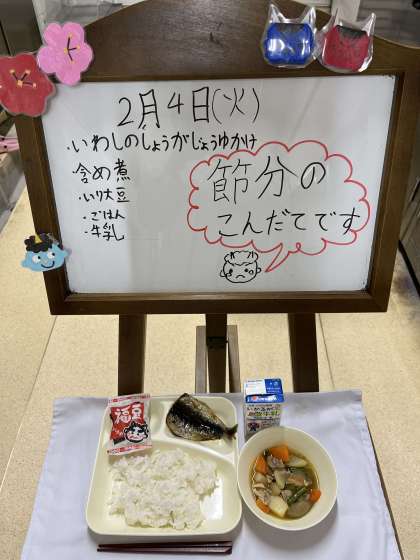 2月4日(火)
・いわしのしょうがじょうゆかけ
・含め煮
・いり大豆
・ごはん
・牛乳
節分の
こんだてです
福豆